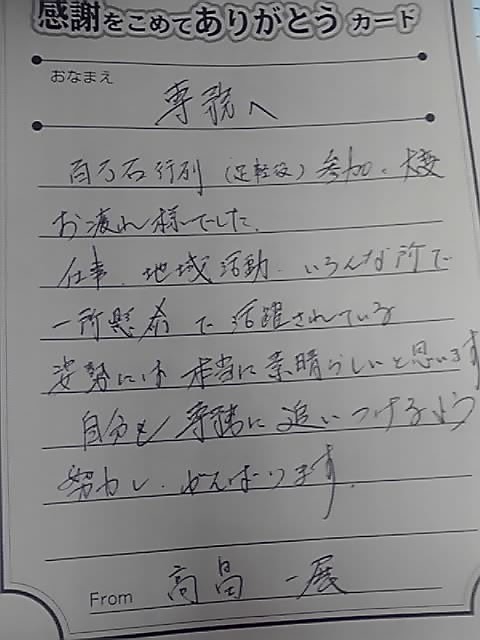 感謝をこめてありがとうカード
おなまえ
専務へ
百万石行列(足軽役)参加、大変
お疲れ様でした。
仕事、地域活動、いろんな所で
一所懸命で活躍されている
姿勢には本当に素晴らしいと思います
自分も専務に追いつけるよう
努力し、がんばります。
From 高畠 一展